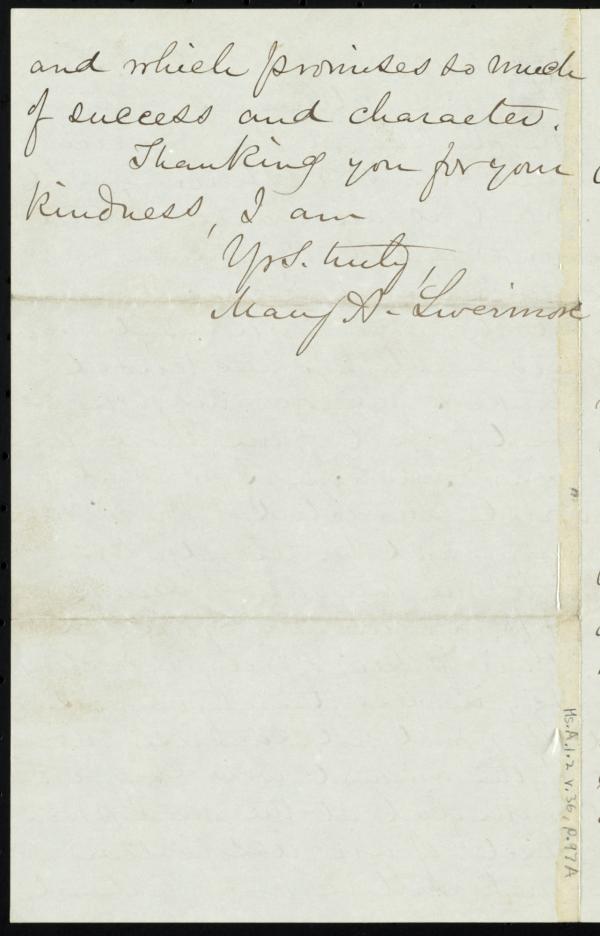 and which promises so much
of success and character.
Thanking you for your
kindness, I am
Yrs. truly,
Mary A. Livermore
Ms.A.1.2 v.36, p.97A